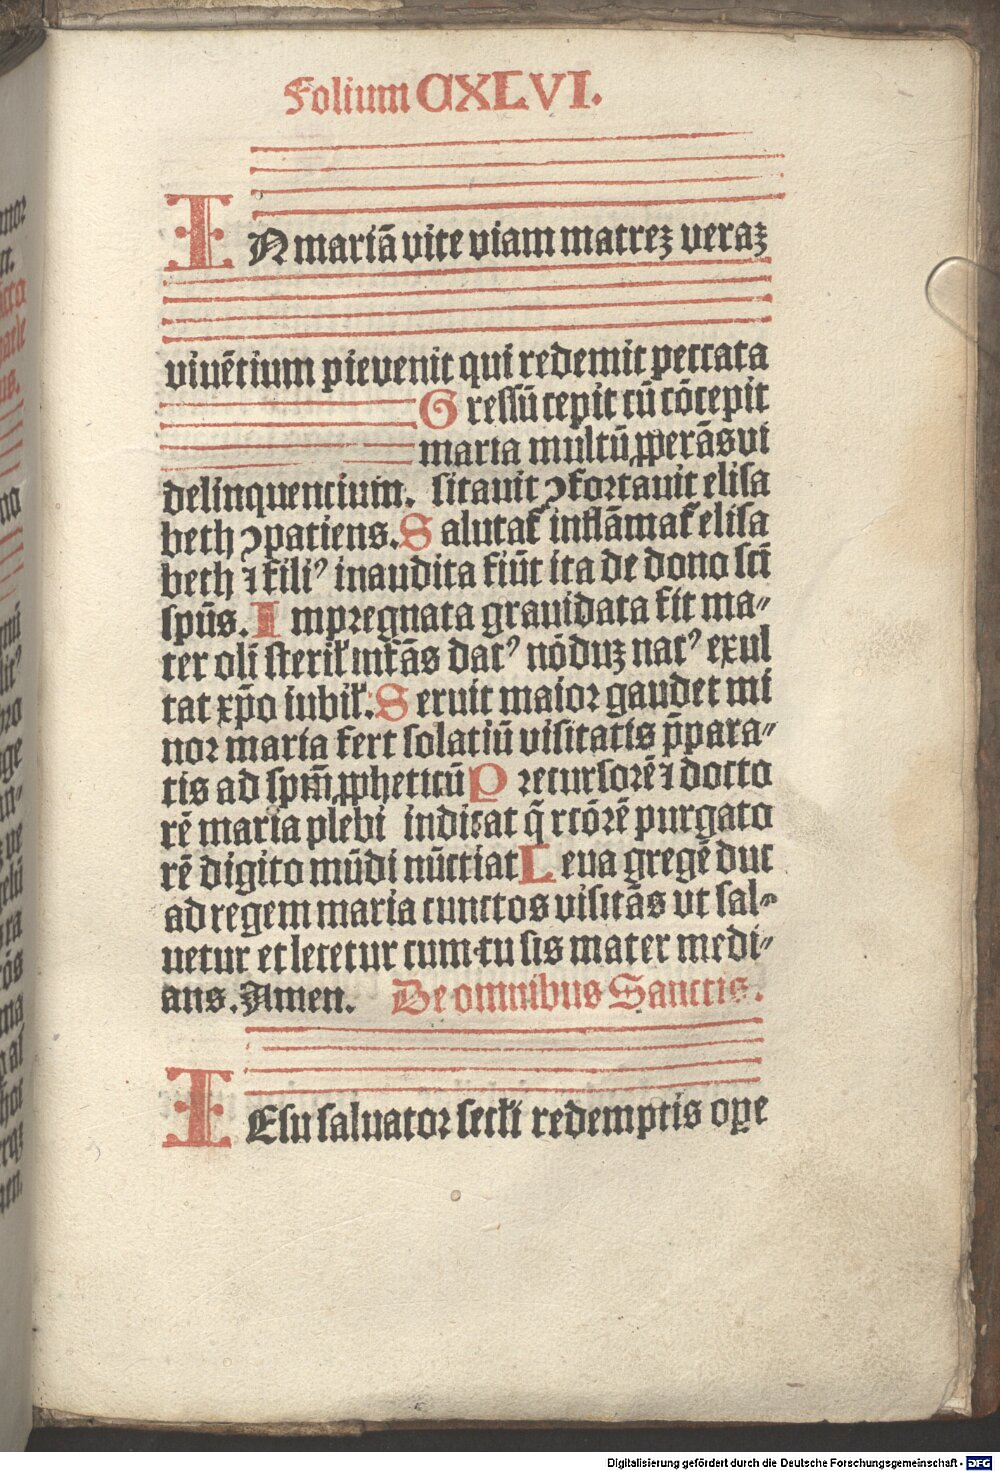 Folium CXLVI.
IN mariā vite viam matreꝫ veraꝫ
viuētium pievenit qui redemit peccata
Gressū cepit cū cōcepit
maria multū ꝓperās vi
delinquencium. sitauit ↄfortauit elisa
beth ↄpatiens. Salutat inflāmat elisa
beth ⁊ filiꝰ inaudita fiūt ita de dono scī
spūs. Impregnata grauidata fit ma⸗
ter olī steriƚ infās datꝰ nōduꝫ natꝰ exul
tat xp̄o iubiƚ: Seruit maior gaudet mi
nor maria fert solatiū visitatis p̄para⸗
tis ad spm̄ ꝓpheticū Precursorē ⁊ docto
rē maria plebi indicat q̄ rcōrē purgato
rē digito mūdi nūctiat Leua gregē duc
ad regem maria cunctos visitās vt sal⸗
uetur et letetur cum tu sis mater medi⸗
ans. Amen. De omnibus Sanctis.
IEsu saluator secƚi redemptis ope
Digitalisierung gefördert durch die Deutsche Forschungsgemeinschaft - DFG